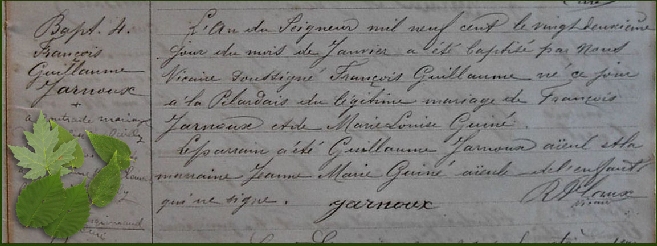 Bapt. 4.
François
Guillaume
Jarnoux
+
a contracté mariage
L'An du Seigneur mil neuf cent le vingt deuxième
jour du mois de Janvier a été baptisé par nous
Vicaire soussigné François Guillaume né ce jour
a la Pilardais du légitime mariage de François
Jarnoux et de Marie Louise Guiné.
Le parrain a été Guillaume Jarnoux aïeul et la
marraine Jeanne Marie Guiné aïeule de l'enfant
qui ne signe. Jarnoux